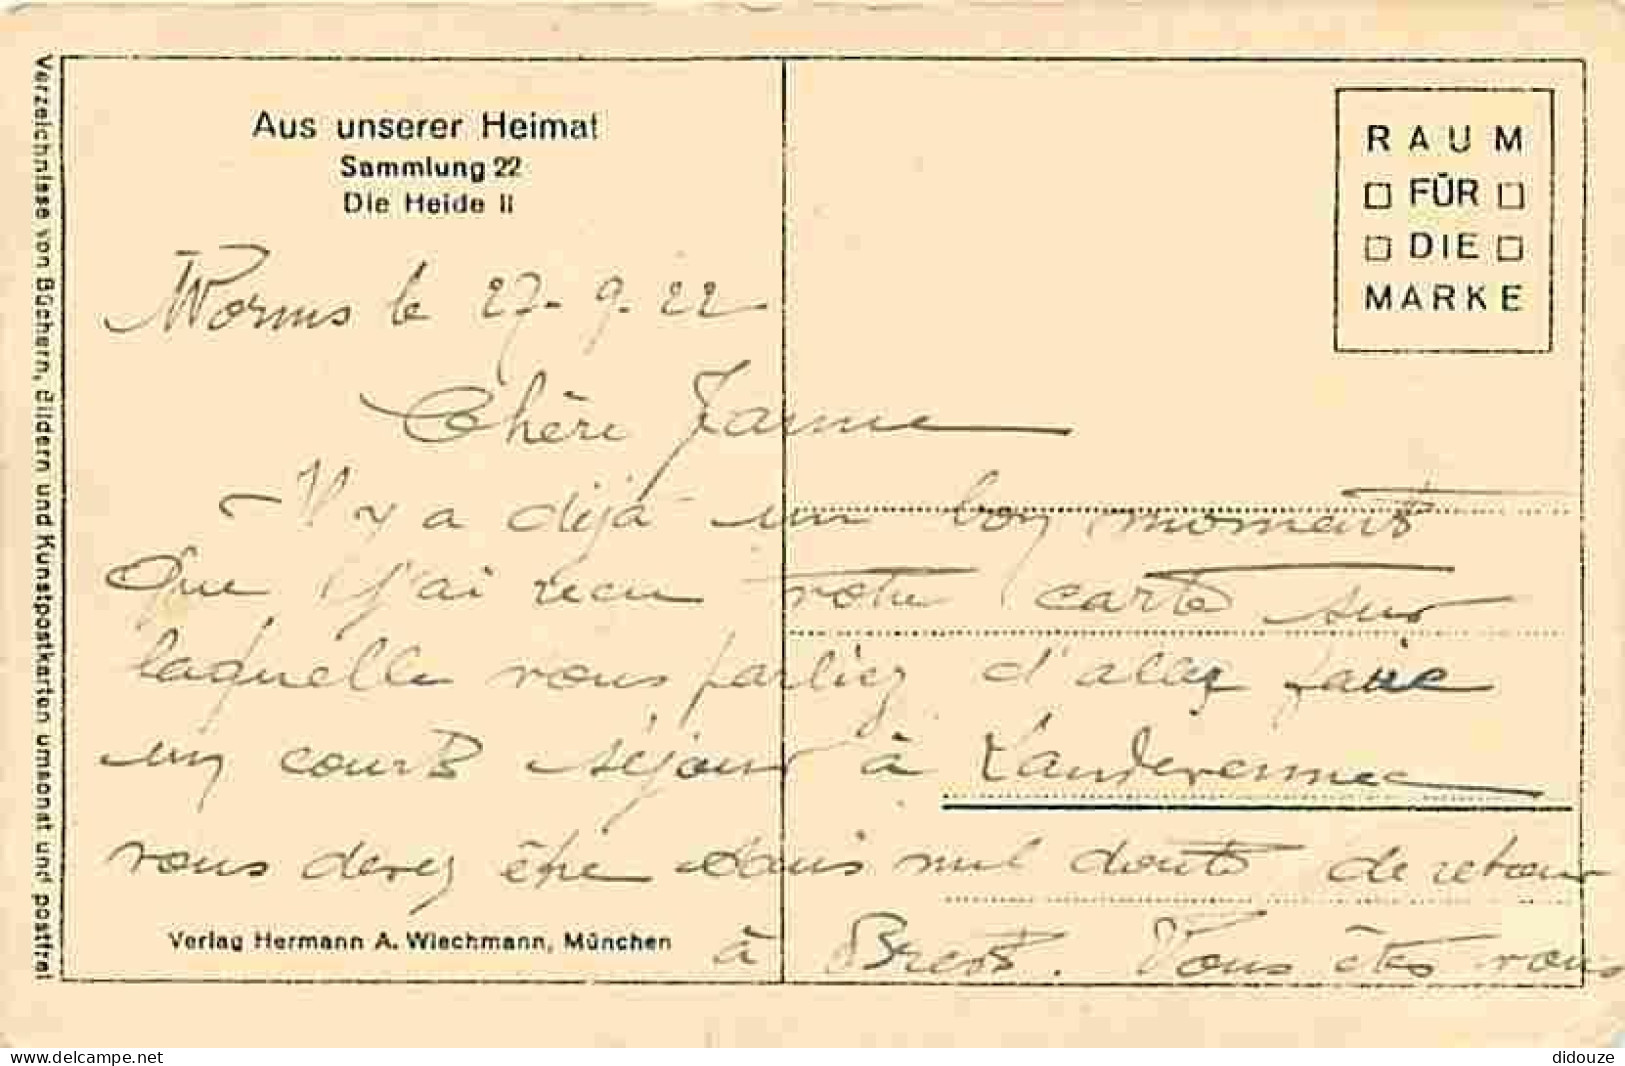 Aus unserer Heimat
Sammlung 22
Die Heide II
RAUM
FÜR
DIE
MARKE
Verzeichnisse von Büchern, Bildern und Kunstpostkarten umsonst und postfrei
Worms le 27-9-22
Chère
Il y a déjà un bon moment
que j'ai recu votre carte sur
laquelle vous parliez d'aller faire
un court séjour à Landevennec
vous devez être sans nul doute de retour
à Brest. Vous êtes vous
Verlag Hermann A. Wiechmann, München
www.delcampe.net
didouze